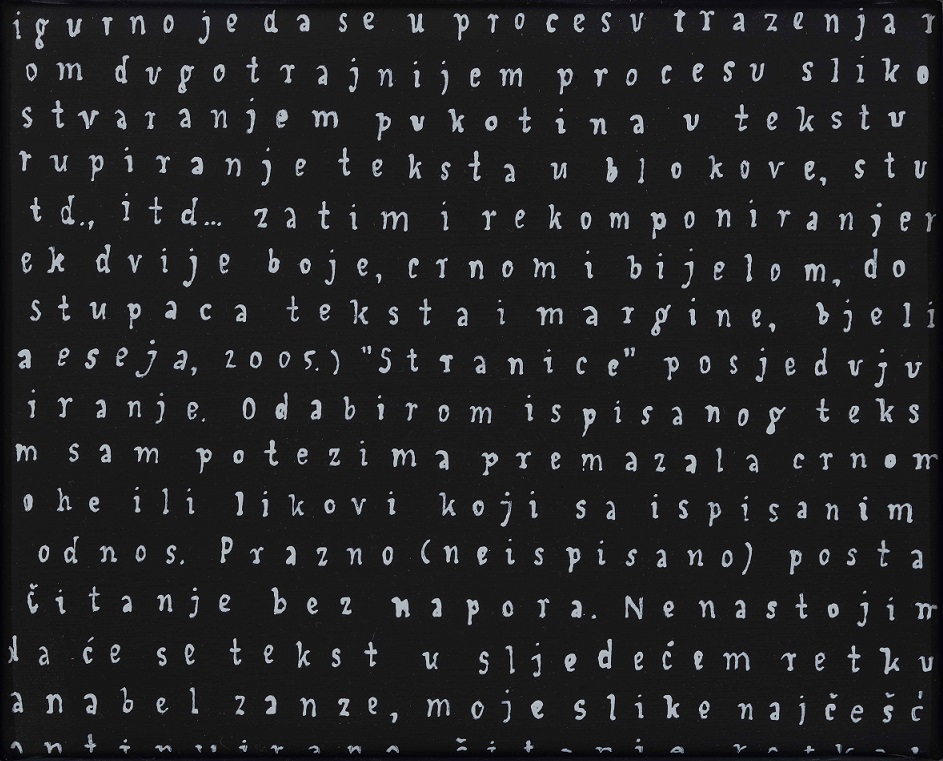 igurno je da se u procesu trazenja r
om dugotrajnijem procesu sliko
stvaranjem pukotina u tekstu
rupiranje teksta u blokove, stu
td., itd... zatim i rekomponiranjem
ek dvije boje, crnom i bijelom, do
stupaca teksta i margine, bjeli
a eseja, 2005.) "Stranice" posjedvju
iranje. Odabirom ispisanog teks
m sam potezima premazala crnom
ohe ili likovi koji sa ispisanim
odnos. Prazno (neispisano) posta
čitanje bez napora. Ne nastojim
da će se tekst u sljedećem retku
anabel zanze, moje slike najčešć